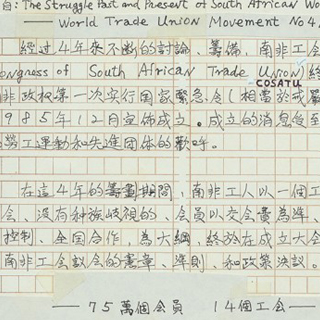 自: The Struggle Past and Present of South African Wo
— World Trade Union Movement No 4,
經过4年來不断的討論、籌備,南非工会
Congress of South African Trade Union)終
COSATU
非政权第一次实行国家緊急令(相當於戒嚴
985年12月宣佈成立。成立的消息後至
勞工運動和先進团体的歡呼。
在這4年的籌劃期間,南非工人以一個工
会、没有种族歧視的、会員以交会費為準、
控制、全国合作,為大綱,終於在成立大会
南非工会議会的憲章、準則、和政策決議。
— 75萬個会員 14個工会 —